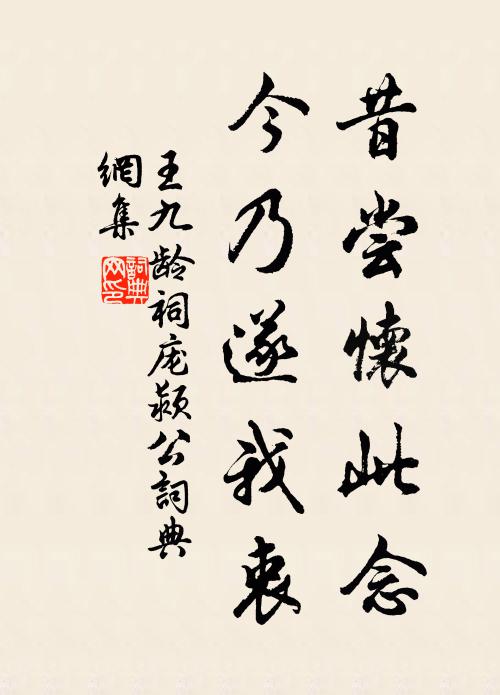 昔尝懷此念
今乃遂我衷
王九龄祠庞颍公詞典
網集
詞典
网印